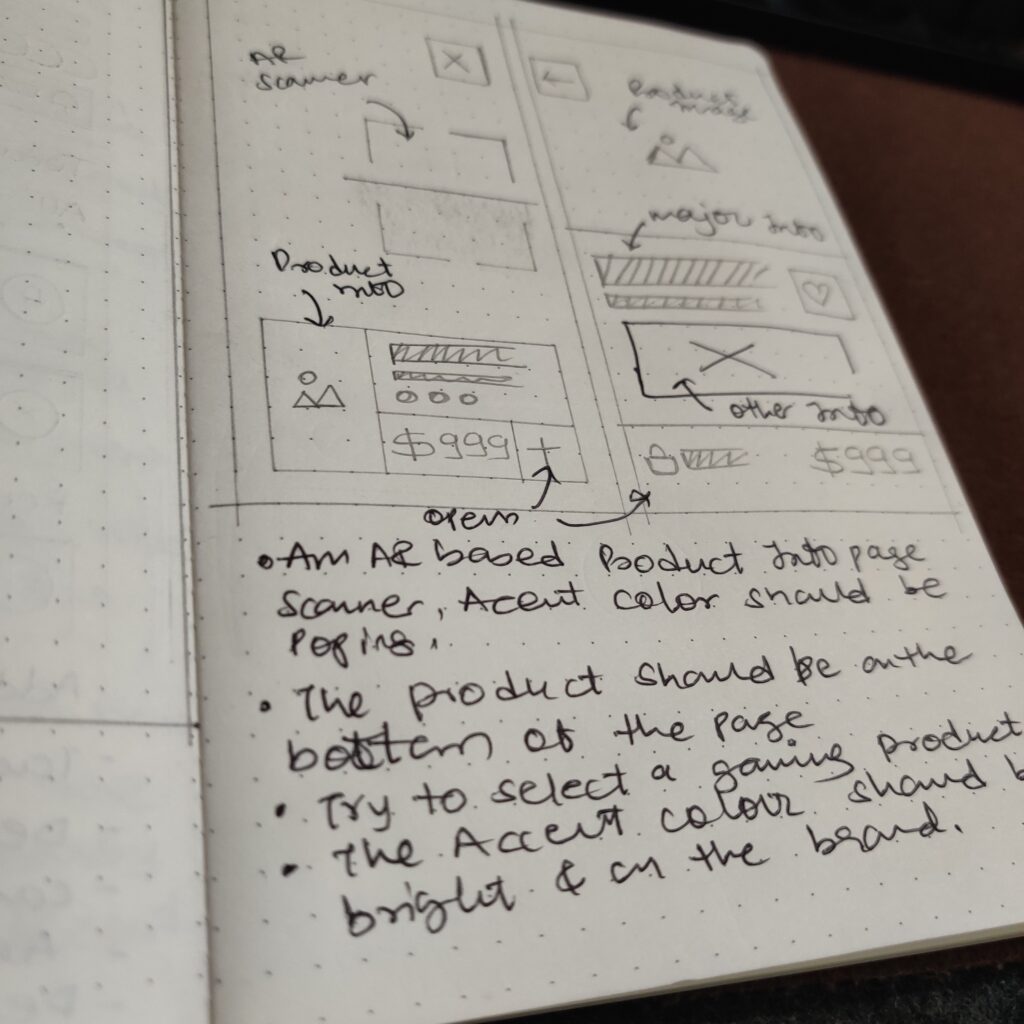 AR
Scanner
Product
Image
major Info
Product
Info
other Info
$999
$999
open
• An AR based Product Info page
Scanner, Accent color should be
Poping.
• The product should be on the
bottom of the page
• Try to select a gaming product
• The Accent colour should b
bright & on the brand.